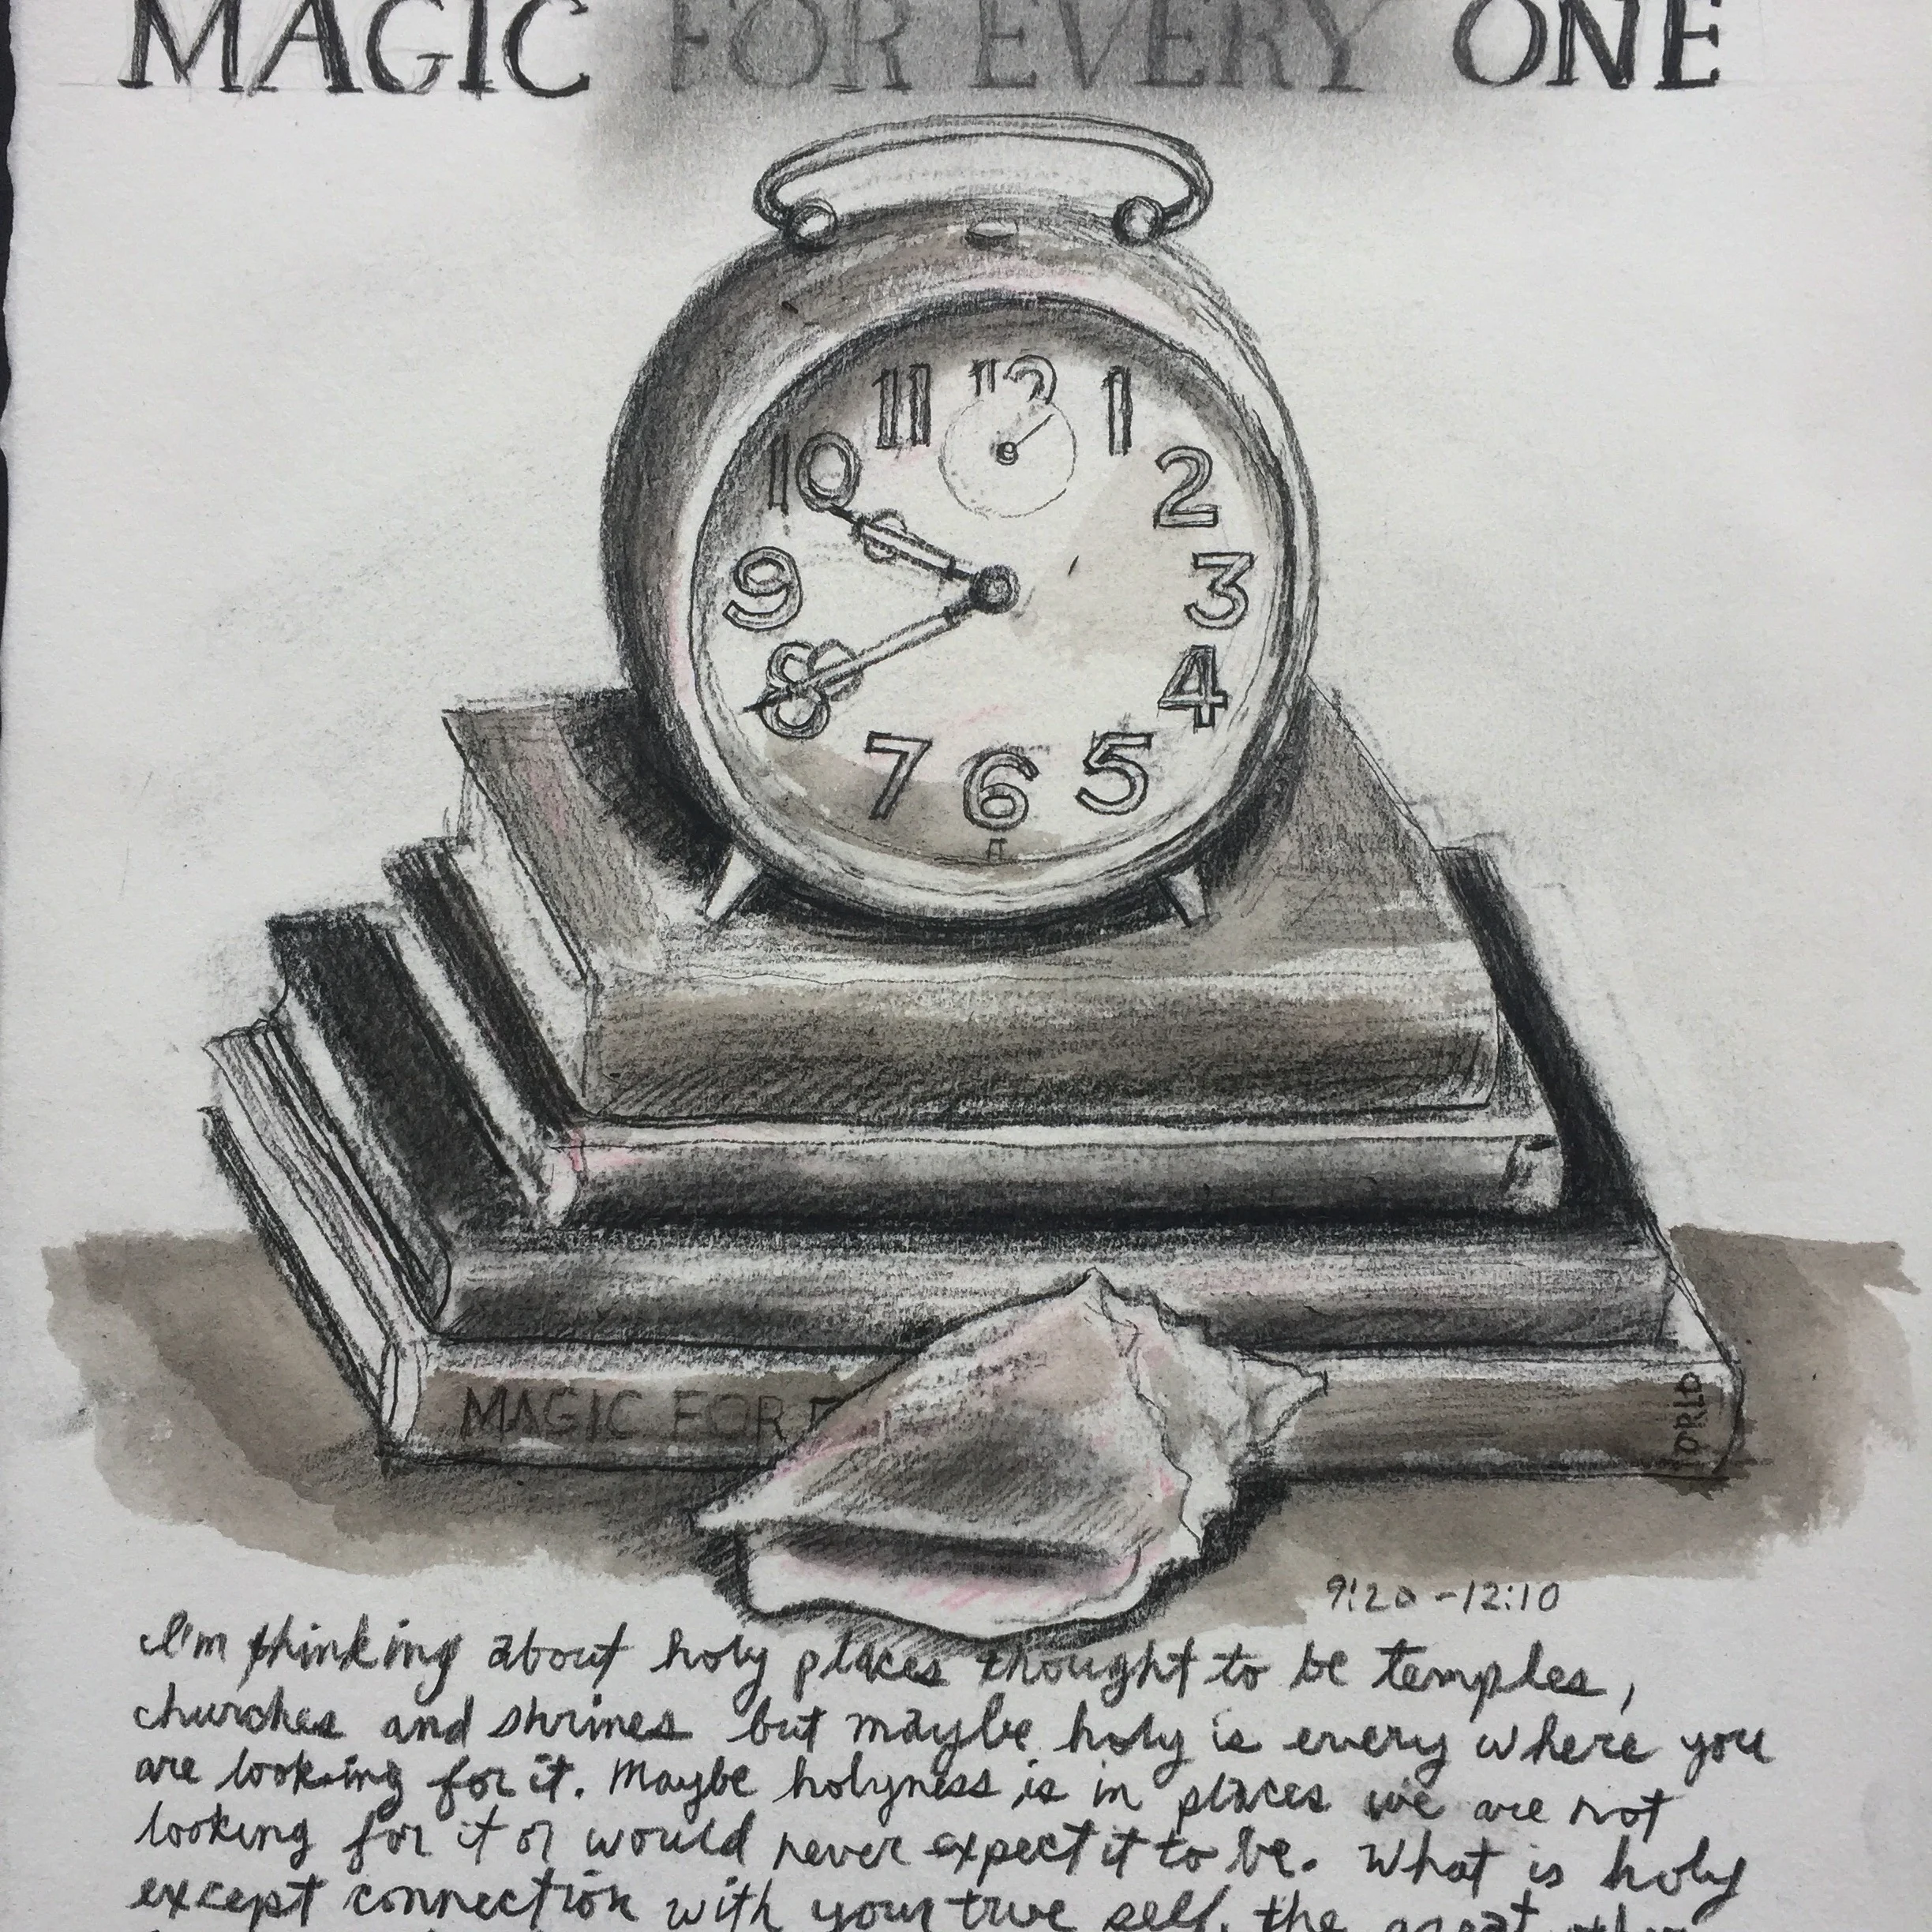 MAGIC FOR EVERY ONE
11 12 1
10 2
9 3
8 4
7 6 5
MAGIC FOR E
WORLD
9:20 - 12:10
I'm thinking about holy places thought to be temples,
churches and shrines but maybe holy is every where you
are looking for it. Maybe holyness is in places we are not
looking for it or would never expect it to be. What is holy
except connection with your true self, the great other